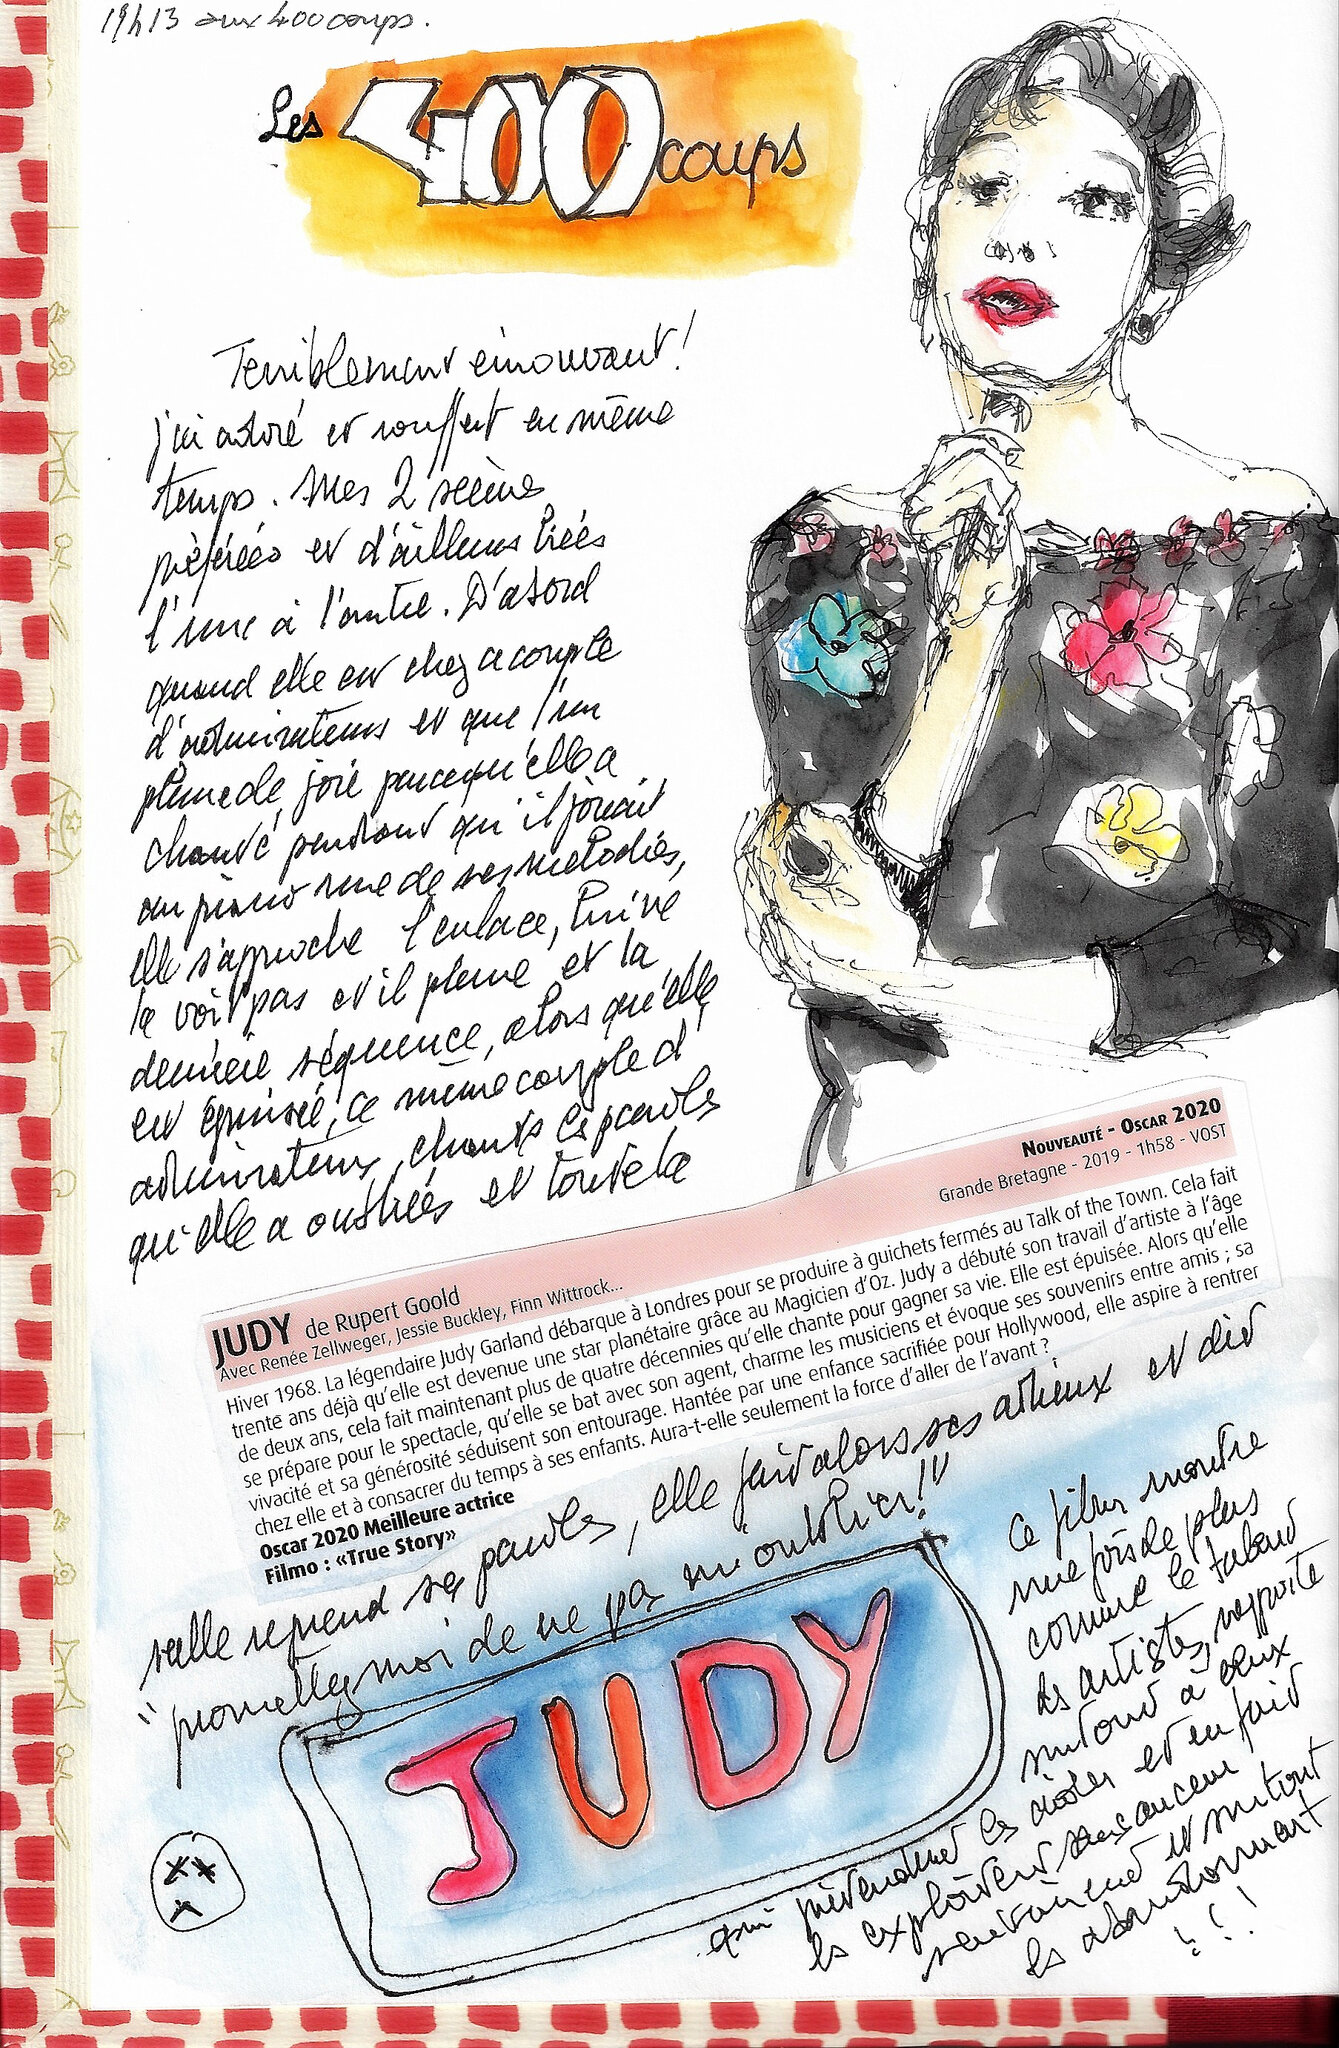 19h13 aux 400 coups.
Les 400 coups
Terriblement émouvant!
j'ai adoré et souffert en même
temps. Mes 2 scènes
préférées et d'ailleurs liées
l'une à l'autre. D'abord
quand elle est chez ce couple
d'admirateurs et que l'un
pleure de joie parcequ'elle a
chanté pendant qu'il jouait
au piano une de ses mélodies,
elle s'approche l'enlace,
le voit pas et il pleure et la
dernière séquence, alors qu'elle
est épuisée, ce même couple d'
admirateurs, chante les paroles
qu'elle a oubliées et toute la
NOUVEAUTÉ - OSCAR 2020
Grande Bretagne - 2019 - 1h58 - VOST
JUDY de Rupert Goold
Avec Renée Zellweger, Jessie Buckley, Finn Wittrock...
Hiver 1968. La légendaire Judy Garland débarque à Londres pour se produire à guichets fermés au Talk of the Town. Cela fait
trente ans déjà qu'elle est devenue une star planétaire grâce au Magicien d'Oz. Judy a débuté son travail d'artiste à l'âge
de deux ans, cela fait maintenant plus de quatre décennies qu'elle chante pour gagner sa vie. Elle est épuisée. Alors qu'elle
se prépare pour le spectacle, qu'elle se bat avec son agent, charme les musiciens et évoque ses souvenirs entre amis ; sa
vivacité et sa générosité séduisent son entourage. Hantée par une enfance sacrifiée pour Hollywood, elle aspire à rentrer
chez elle et à consacrer du temps à ses enfants. Aura-t-elle seulement la force d'aller de l'avant ?
Oscar 2020 Meilleure actrice
Filmo : «True Story»
salle reprend ses paroles, elle fait alors ses adieux et dit
"promettez moi de ne pas m'oublier!"
JUDY
Ce film montre
une fois de plus
comme le
les artistes, rapporte
surtout à ceux
qui prétendent les aider et en fait
les exploitent sans aucun
et surtout
les abandonnant
!!!